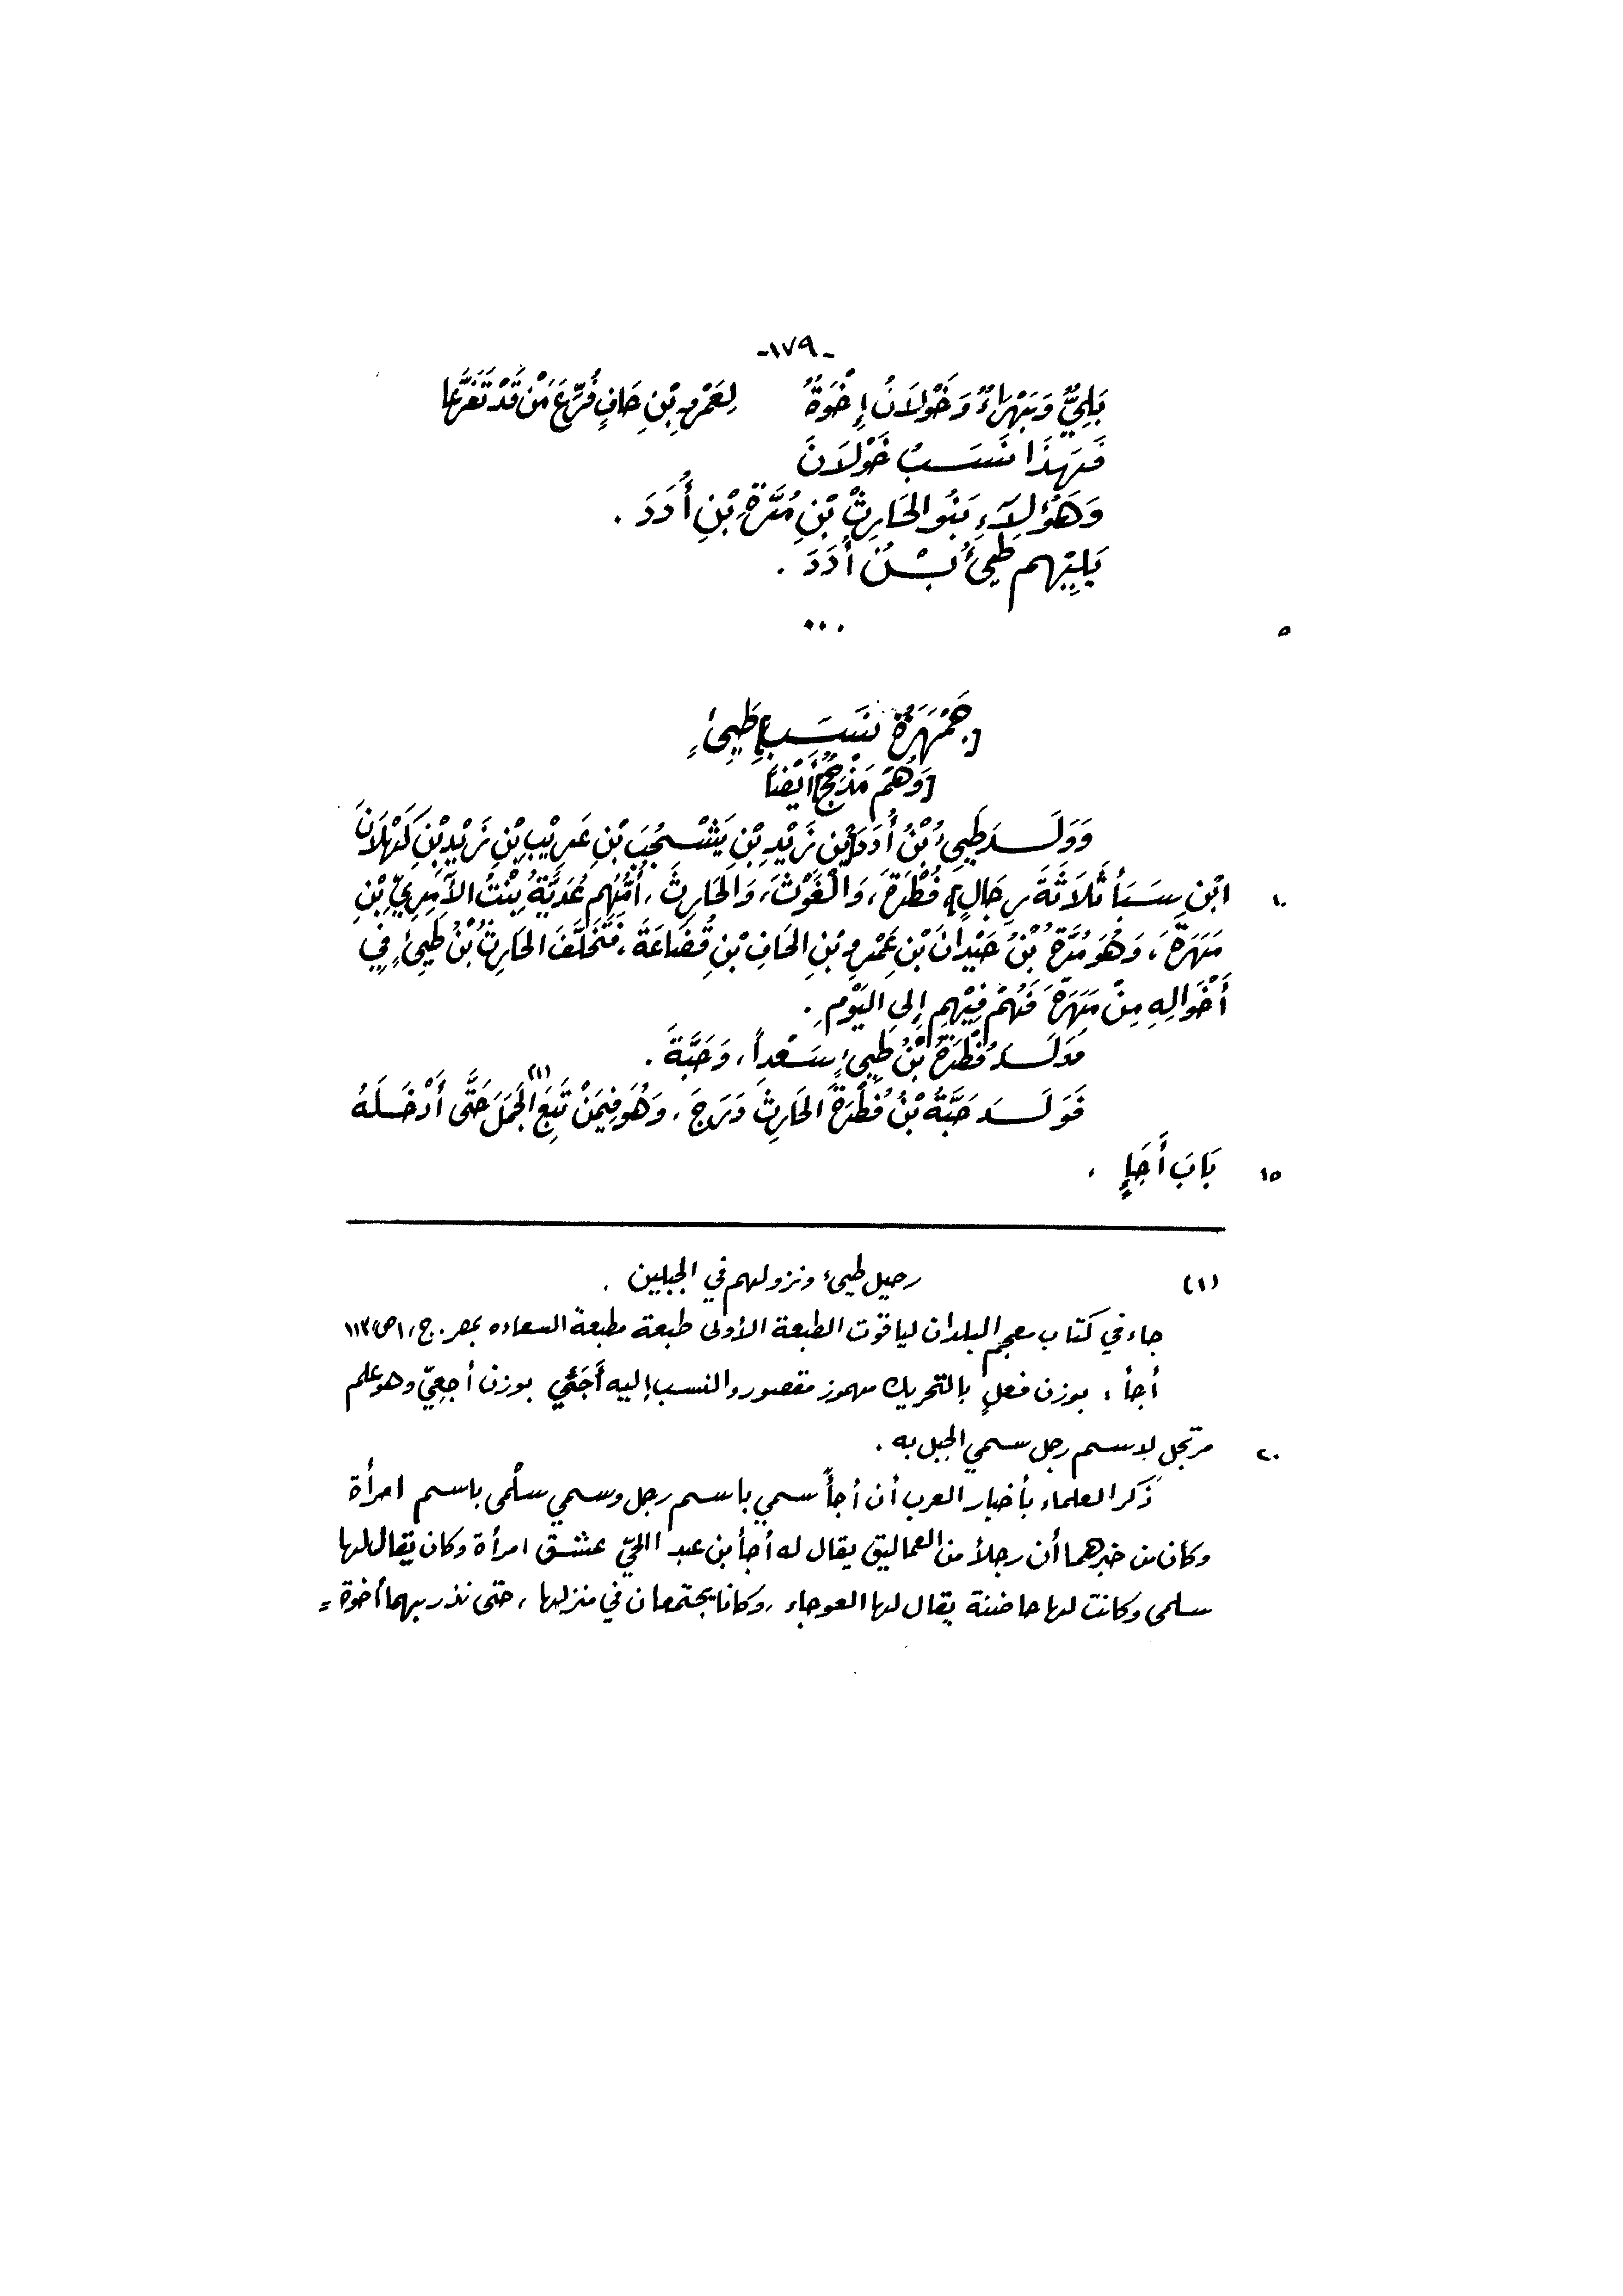 -١٧٩-
بَلِيٌّ وَبَهْرَاءٌ وَخَوْلَانُ إِخْوَةٌ لِعَمْرِو بْنِ حَافٍ فُرِّعَ مَنْ قَدْ تَفَرَّعَا
فَهَذَا نَسَبُ خَوْلَانَ
وَهَؤُلَاءِ بَنُو الحَارِثِ بْنِ مُرَّةَ بْنِ أُدَدَ .
يَلِيْهِم طَيِّئُ بْنُ أُدَدَ .
...
٥
[جَمْهَرَةُ نَسَبِ] طَيِّئٍ
[وَهُم مَذْحِجٌ] أَيْضَاً
وَوَلَدَ طَيِّءُ بْنُ أُدَدَ [بْنِ زَيْدِ بْنِ يَشْجُبَ بْنِ عَرِيْبِ بْنِ زَيْدِ بْنِ كَهْلَانَ
١٠ ابْنِ سَبَأ ثَلَاثَةَ رِجَالٍ] فُطْرَةَ، وَالْغَوْثَ، وَالحَارِثَ، أُمُّهُم عُدَيَّةُ بِنْتُ الآمِرِيِّ بْنِ
مَهَرَةَ، وَهُوَ مُرَّةُ بْنُ حَيْدَانَ بْنِ عَمْرِو بْنِ الحَافِ بْنِ قُضَاعَةَ، فَتَخَلَّفَ الحَارِثُ بْنُ طَيِّئٍ فِي
أَخْوَالِهِ مِنْ مَهَرَةَ فَهُمْ فِيْهِم إِلى اليَوْمِ .
فَوَلَدَ فُطْرَةُ بْنُ طَيِّءٍ سَعْداً، وَحَبَّةَ .
فَوَلَدَ حَبَّةُ بْنُ فُطْرَةَ الحَارِثَ دَرَجَ، وَهُوَ فِيمَنْ تَبِعَ الجَمَلَ(١) حَتَّى أَدْخَلَهُ
١٥ بَابَ أَجَإٍ .
(١) رحيل طيئ ونزولهم في الجبلين .
جاء في كتاب معجم البلدان لياقوت الطبعة الأولى طبعة مطبعة السعاده بمصر. ج،١ ص، ١١٣
أجأ : بوزن فعلٍ بالتحريك مهموز مقصور والنسب إليه أَجَئي بوزن أجعِيّ وهو علم
٢٠ مرتجل لاسم رجل سمي الجبل به .
ذَكر العلماء بأخبار العرب أن أجأً سمي باسم رجل وسمي سلْمى باسم امرأة
وكان من خبرهما أن رجلاً من العماليق يقال له أجأ بن عبد الحَيّ عشق امرأة وكان يقال لها
سلمى وكانت لها حاضنة يقال لها العوجاء، وكانا يجتمعان في منزلها، حتى نذر بهما أخوة =